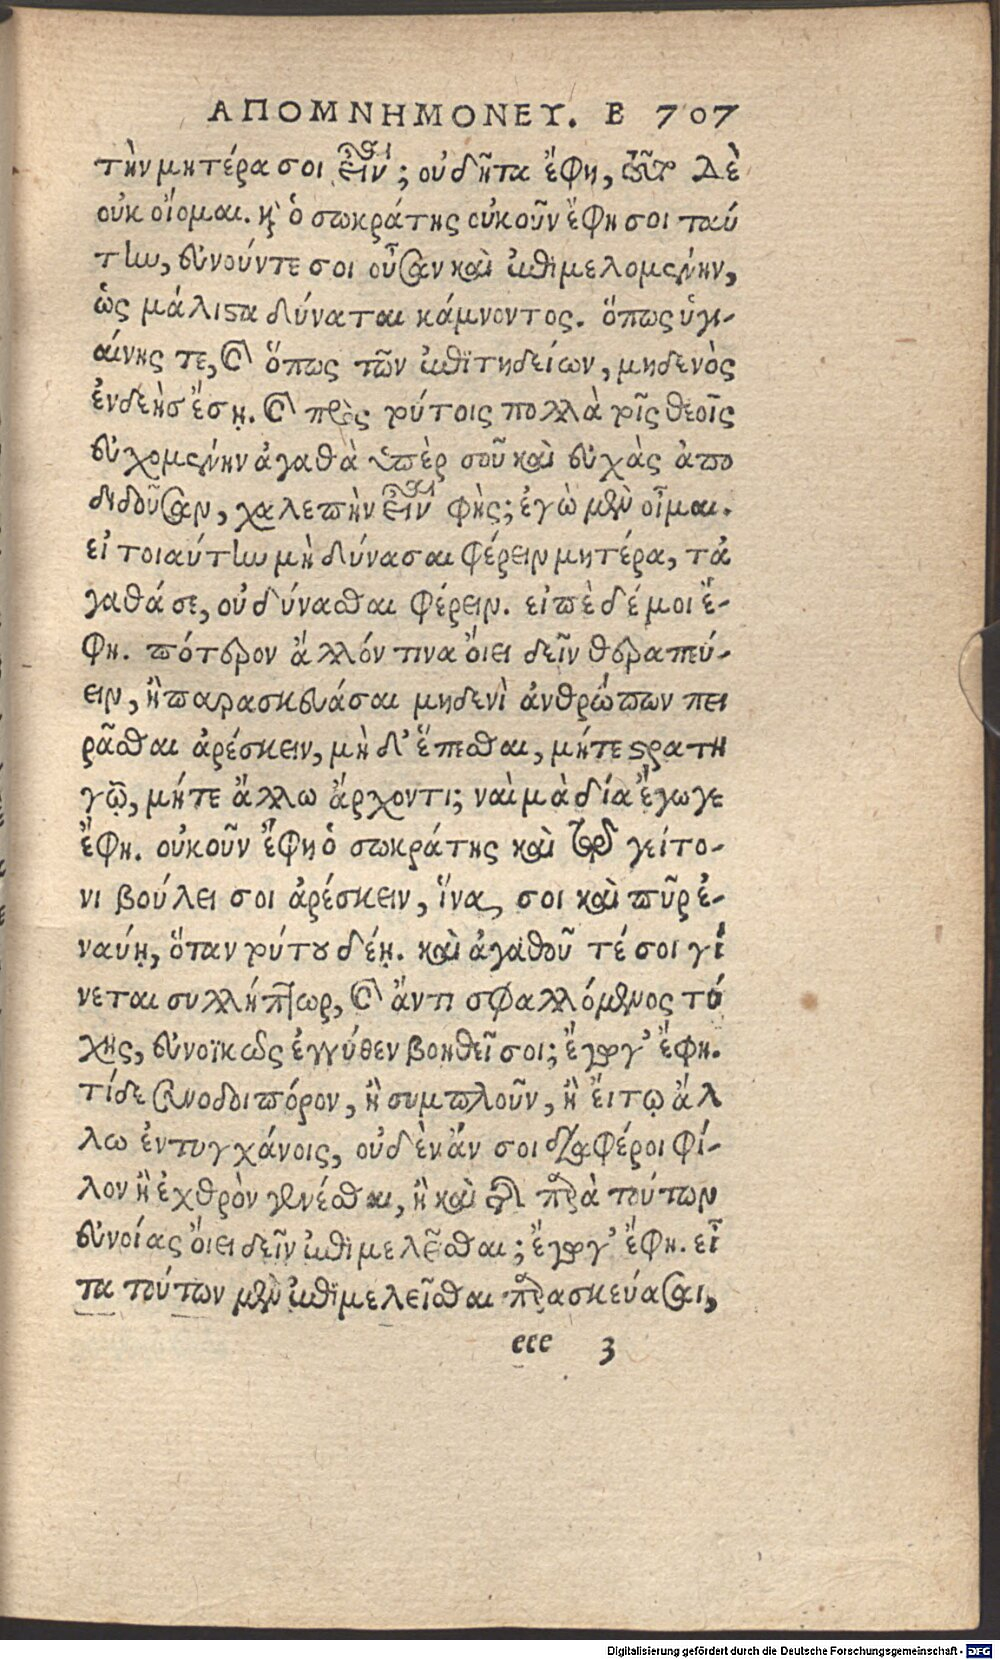 ΑΠΟΜΝΗΜΟΝΕΥ. Β 707
τὴν μητέρα σοι εἶναι; οὐ δῆτα ἔφη, τοῦτό γε Δὲ
οὐκ οἴομαι. καὶ ὁ σωκράτης οὐκοῦν ἔφη σοι ταύ
την, εὐνούν τε σοι οὖσαν καὶ ἐπιμελομένην,
ὡς μάλιστα δύναται κάμνοντος. ὅπως ὑγι-
αίνης τε, καὶ ὅπως τῶν ἐπιτηδείων, μηδενὸς
ἐνδεὴσ ἔσῃ. καὶ πρὸς τούτοις πολλὰ τοῖς θεοῖς
εὐχομένην ἀγαθὰ ὑπὲρ σοῦ καὶ εὐχὰς ἀπο
διδοῦσαν, χαλεπὴν εἶναι φὴς; ἐγὼ μὲν οἶμαι.
εἰ τοιαύτην μὴ δύνασαι φέρειν μητέρα, τἀ
γαθά σε, οὐ δύνασθαι φέρειν. εἰπὲ δέ μοι ἔ-
φη. πότερον ἄλλόν τινα ὄιει δεῖν θεραπεύ-
ειν, ἢ παρασκευάσαι μηδενὶ ἀνθρώπων πει
ρᾶσθαι ἀρέσκειν, μὴ δ' ἕπεσθαι, μήτε στρατη
γῷ, μήτε ἄλλω ἄρχοντι; ναὶ μὰ δία ἔγωγε
ἔφη. οὐκοῦν ἔφη ὁ σωκράτης καὶ τῷ γείτο-
νι βούλει σοι ἀρέσκειν, ἵνα σοι καὶ πῦρ ἐ-
ναύῃ, ὅταν τούτου δέῃ. καὶ ἀγαθοῦ τέ σοι γί
νεται συλλήπτωρ, καὶ ἄν τι σφαλλόμενος τύ
χῃς, εὐνοϊκῶς ἐγγύθεν βοηθεῖ σοι; ἔγωγ' ἔφη.
τί δε συνοδοιπόρον, ἢ συμπλοῦν, ἢ ἔι τῳ ἄλ
λω ἐντυγχάνοις, οὐδὲν ἄν σοι διαφέροι φί-
λον ἢ ἐχθρὸν γενέσθαι, ἢ καὶ τῆς παρὰ τούτων
εὐνοίας ὄιει δεῖν ἐπιμελεῖσθαι; ἔγωγ' ἔφη. εἶ
τα τούτων μὲν ἐπιμελεῖσθαι παρασκεύασαι,
eee 3
Digitalisierung gefördert durch die Deutsche Forschungsgemeinschaft - DFG